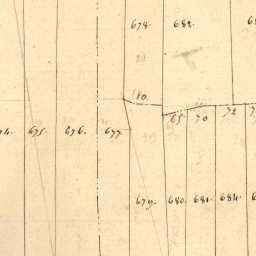 678. 682.
80.
65. 70 72
675. 676. 677.
679. 680. 681. 684.